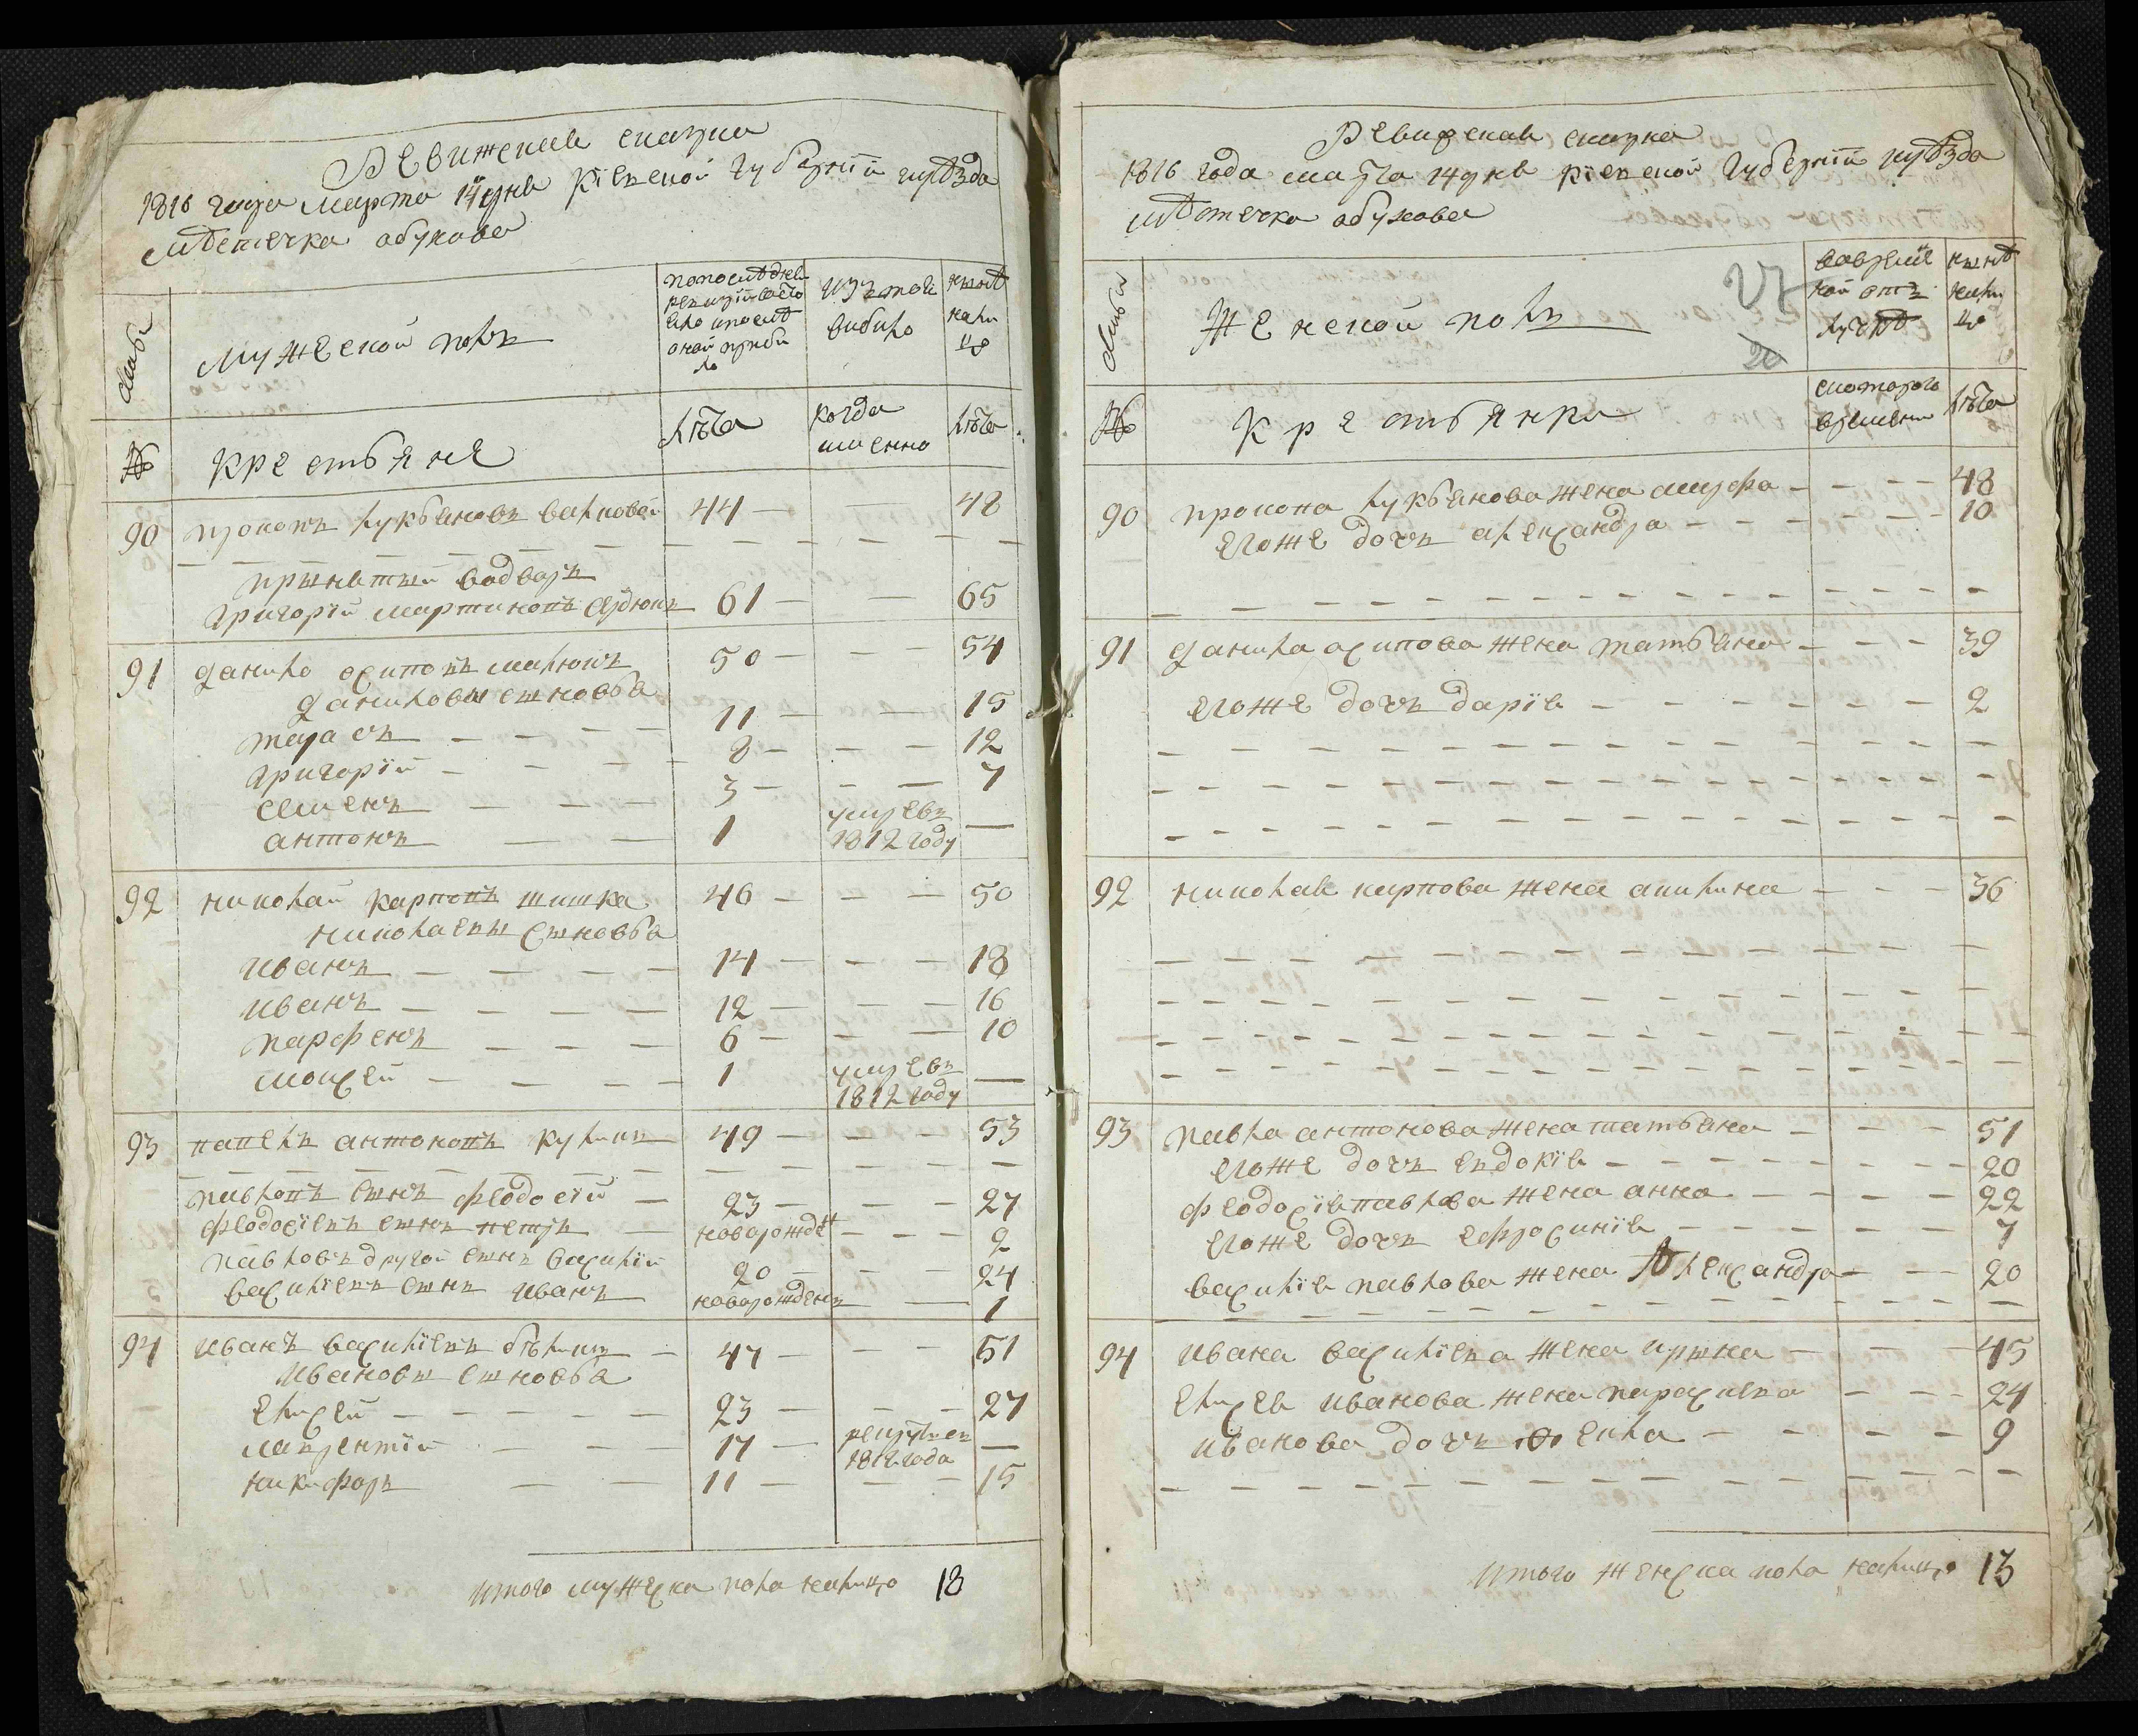 Ревижская сказка
1816 года марта 14 дня Кіевской губернїи и уѣзда
мѣстечка обухова
мужеской полъ
по последней ревизїи состояло и после оной прибыло
изъ того выбыло
ныне налицо
семьи
№
крестьяне
лѣта
когда именно
лѣта
90 прокопъ лукьяновъ 44 — — 48
принятый водворъ
григорїй мартиновъ 61 — — 65
91 данило осиповъ 50 — — 54
даниловы сыновья
тарасъ — 11 — — 15
григорїй — 8 — — 12
семенъ — 3 — — 7
антонъ — 1 умре въ 1812 году —
92 николай карповъ шишка 46 — — 50
николаевы сыновья
иванъ — 14 — — 18
иванъ — 12 — — 16
парфенъ — 6 — — 10
моисей — 1 умре въ 1812 году —
93 павелъ антоновъ куликъ 49 — — 53
павловъ сынъ феодосїй — 23 — — 27
феодосїевъ сынъ петръ — новорожде — — 2
павловъ другой сынъ василїй 20 — — 24
василїевъ сынъ иванъ новорожденъ — 1
94 иванъ василїевъ 47 — — 51
ивановы сыновья
елисей — 23 — — 27
лаврентїй — 17 — 1812 года —
никифоръ — 11 — — 15
итого мужеска пола налицо 18
Ревизская сказка
1816 года марта 14 дня кїевской губернїи и уѣзда
мѣстечка обухова
семьи
женской полъ
во временной отлучкѣ
ныне налицо
20
№
крестьянки
с котораго времени
лѣта
90 прокопа лукьянова жена марфа — — 48
егоже дочъ александра — — 10
91 данила осипова жена татьяна — — 39
егоже дочъ дарїя — — 2
92 николая карпова жена акилина — — 36
93 павла антонова жена татьяна — — 51
егоже дочъ евдокїя — — 20
феодосїя павлова жена анна — — 22
егоже дочъ ефросинїя — — 7
василїя павлова жена Александра — — 20
94 ивана василїева жена ирина — — 45
елисея иванова жена параскева — — 24
иванова дочъ — — 9
итого женска пола налицо 13